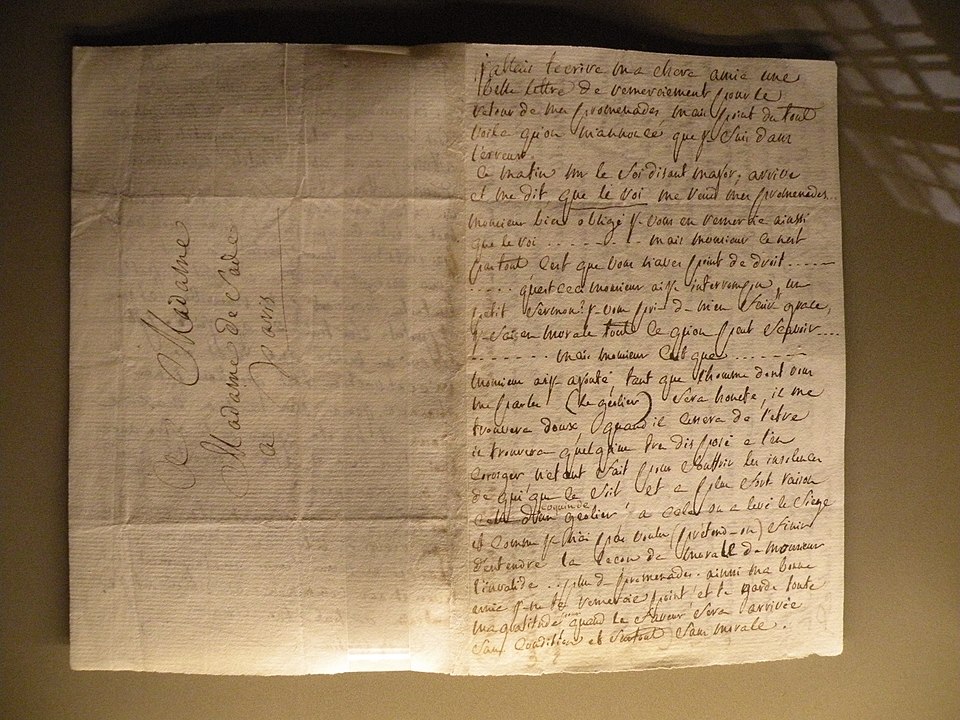 A Madame
Madame de Sade
a paris
j'allais t'ecrire ma chere amie une
belle lettre de remerciement pour le
retour de mes promenades mais point du tout
voila qu'on m'annonce que je suis dans
l'erreur.
ce matin mr le soi disant major, arrive
et me dit, que le roi me rend mes promenades...
monsieur bien obligé je vous en remercie ainsi
que le roi . . . . . . . . mais monsieur ce n'est
pas tout c'est que vous n'aves point de droit . . . . .
. . . . . qu'est ceci monsieur ai je interrompu, un
petit sermon? je vous prie de m'en faire grace,
je sais en morale toutte ce qu'on peut sçavoir . . . .
. . . . . . . . mais monsieur c'est que . . . . . . .
monsieur ai je ajouté, tant que l'homme dont vous
me parles (le géolier) sera honete, il me
trouvera doux, quand il cessera de l'etre
il trouvera quelqu'un tres disposé a l'en
corriger n'etant fait pour souffrir les insolences
de qui que ce soit et a plus forte raison
celle d'un coquin de géolier! a cela on a levé le siege
et comme je n'ai pas voulu (pretend-on) finir
d'entendre la leçon de morale de monsieur
l'invalide . . plus de promenades. ainsi ma bonne
amie je ne te remercie point, et te garde toute
ma gratitude pour quand la faveur sera arrivée
sans condition et surtout sans morale.